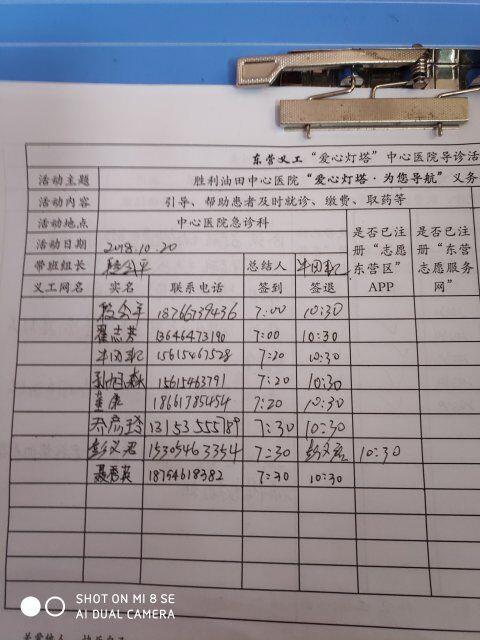 东营义工“爱心灯塔”中心医院导诊活
活动主题 胜利油田中心医院“爱心灯塔·为您导航”义务
活动内容 引导、帮助患者及时就诊、缴费、取药等
活动地点 中心医院急诊科
活动日期 2018.10.20
带班组长 总结人
是否已注册“志愿东营区”APP
是否已注册“东营志愿服务网”
义工网名 实名 联系电话 签到 签退
18766739436 7:00 10:30
翟志芳 13646473190 7:00 10:30
15615467528 7:20 10:30
15615463791 7:20 10:30
18661785454 7:20 10:30
乔彦玲 13153555789 7:30 10:30
彭义君 15305463354 7:30 彭义君 10:30
聂秀英 18754618382 7:30 10:30
SHOT ON MI 8 SE
AI DUAL CAMERA